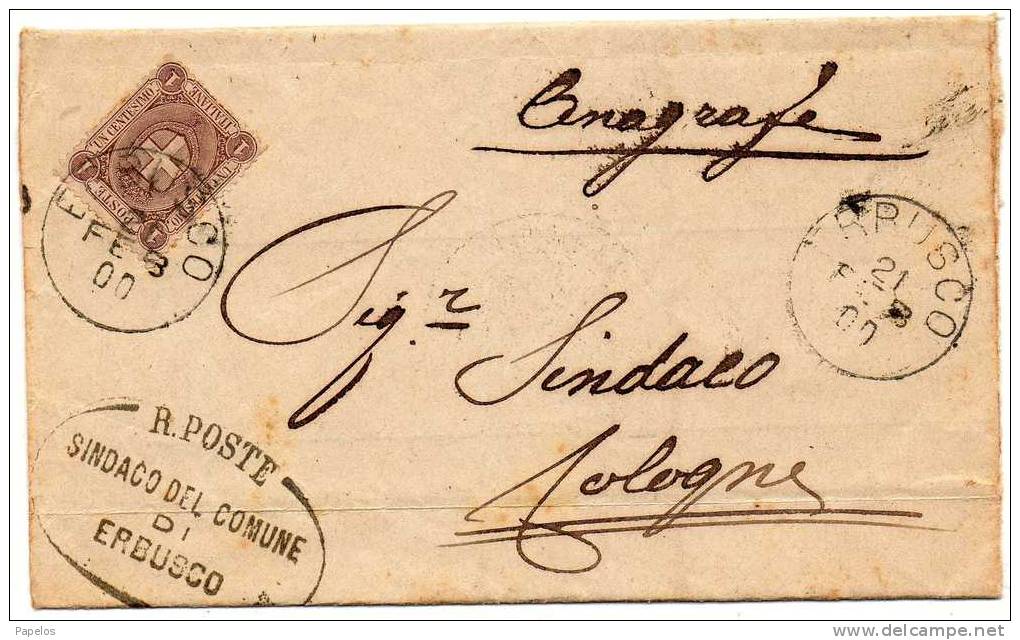 Anagrafe
1 1 1 1
UN CENTESIMO
POSTE
ITALIANE
UN CENTESIMO
POSTE
FEB
00
ERBUSCO
21
FEB
00
Sig.r
Sindaco
Cologne
R. POSTE
SINDACO DEL COMUNE
DI
ERBUSCO
Papelos
www.delcampe.net